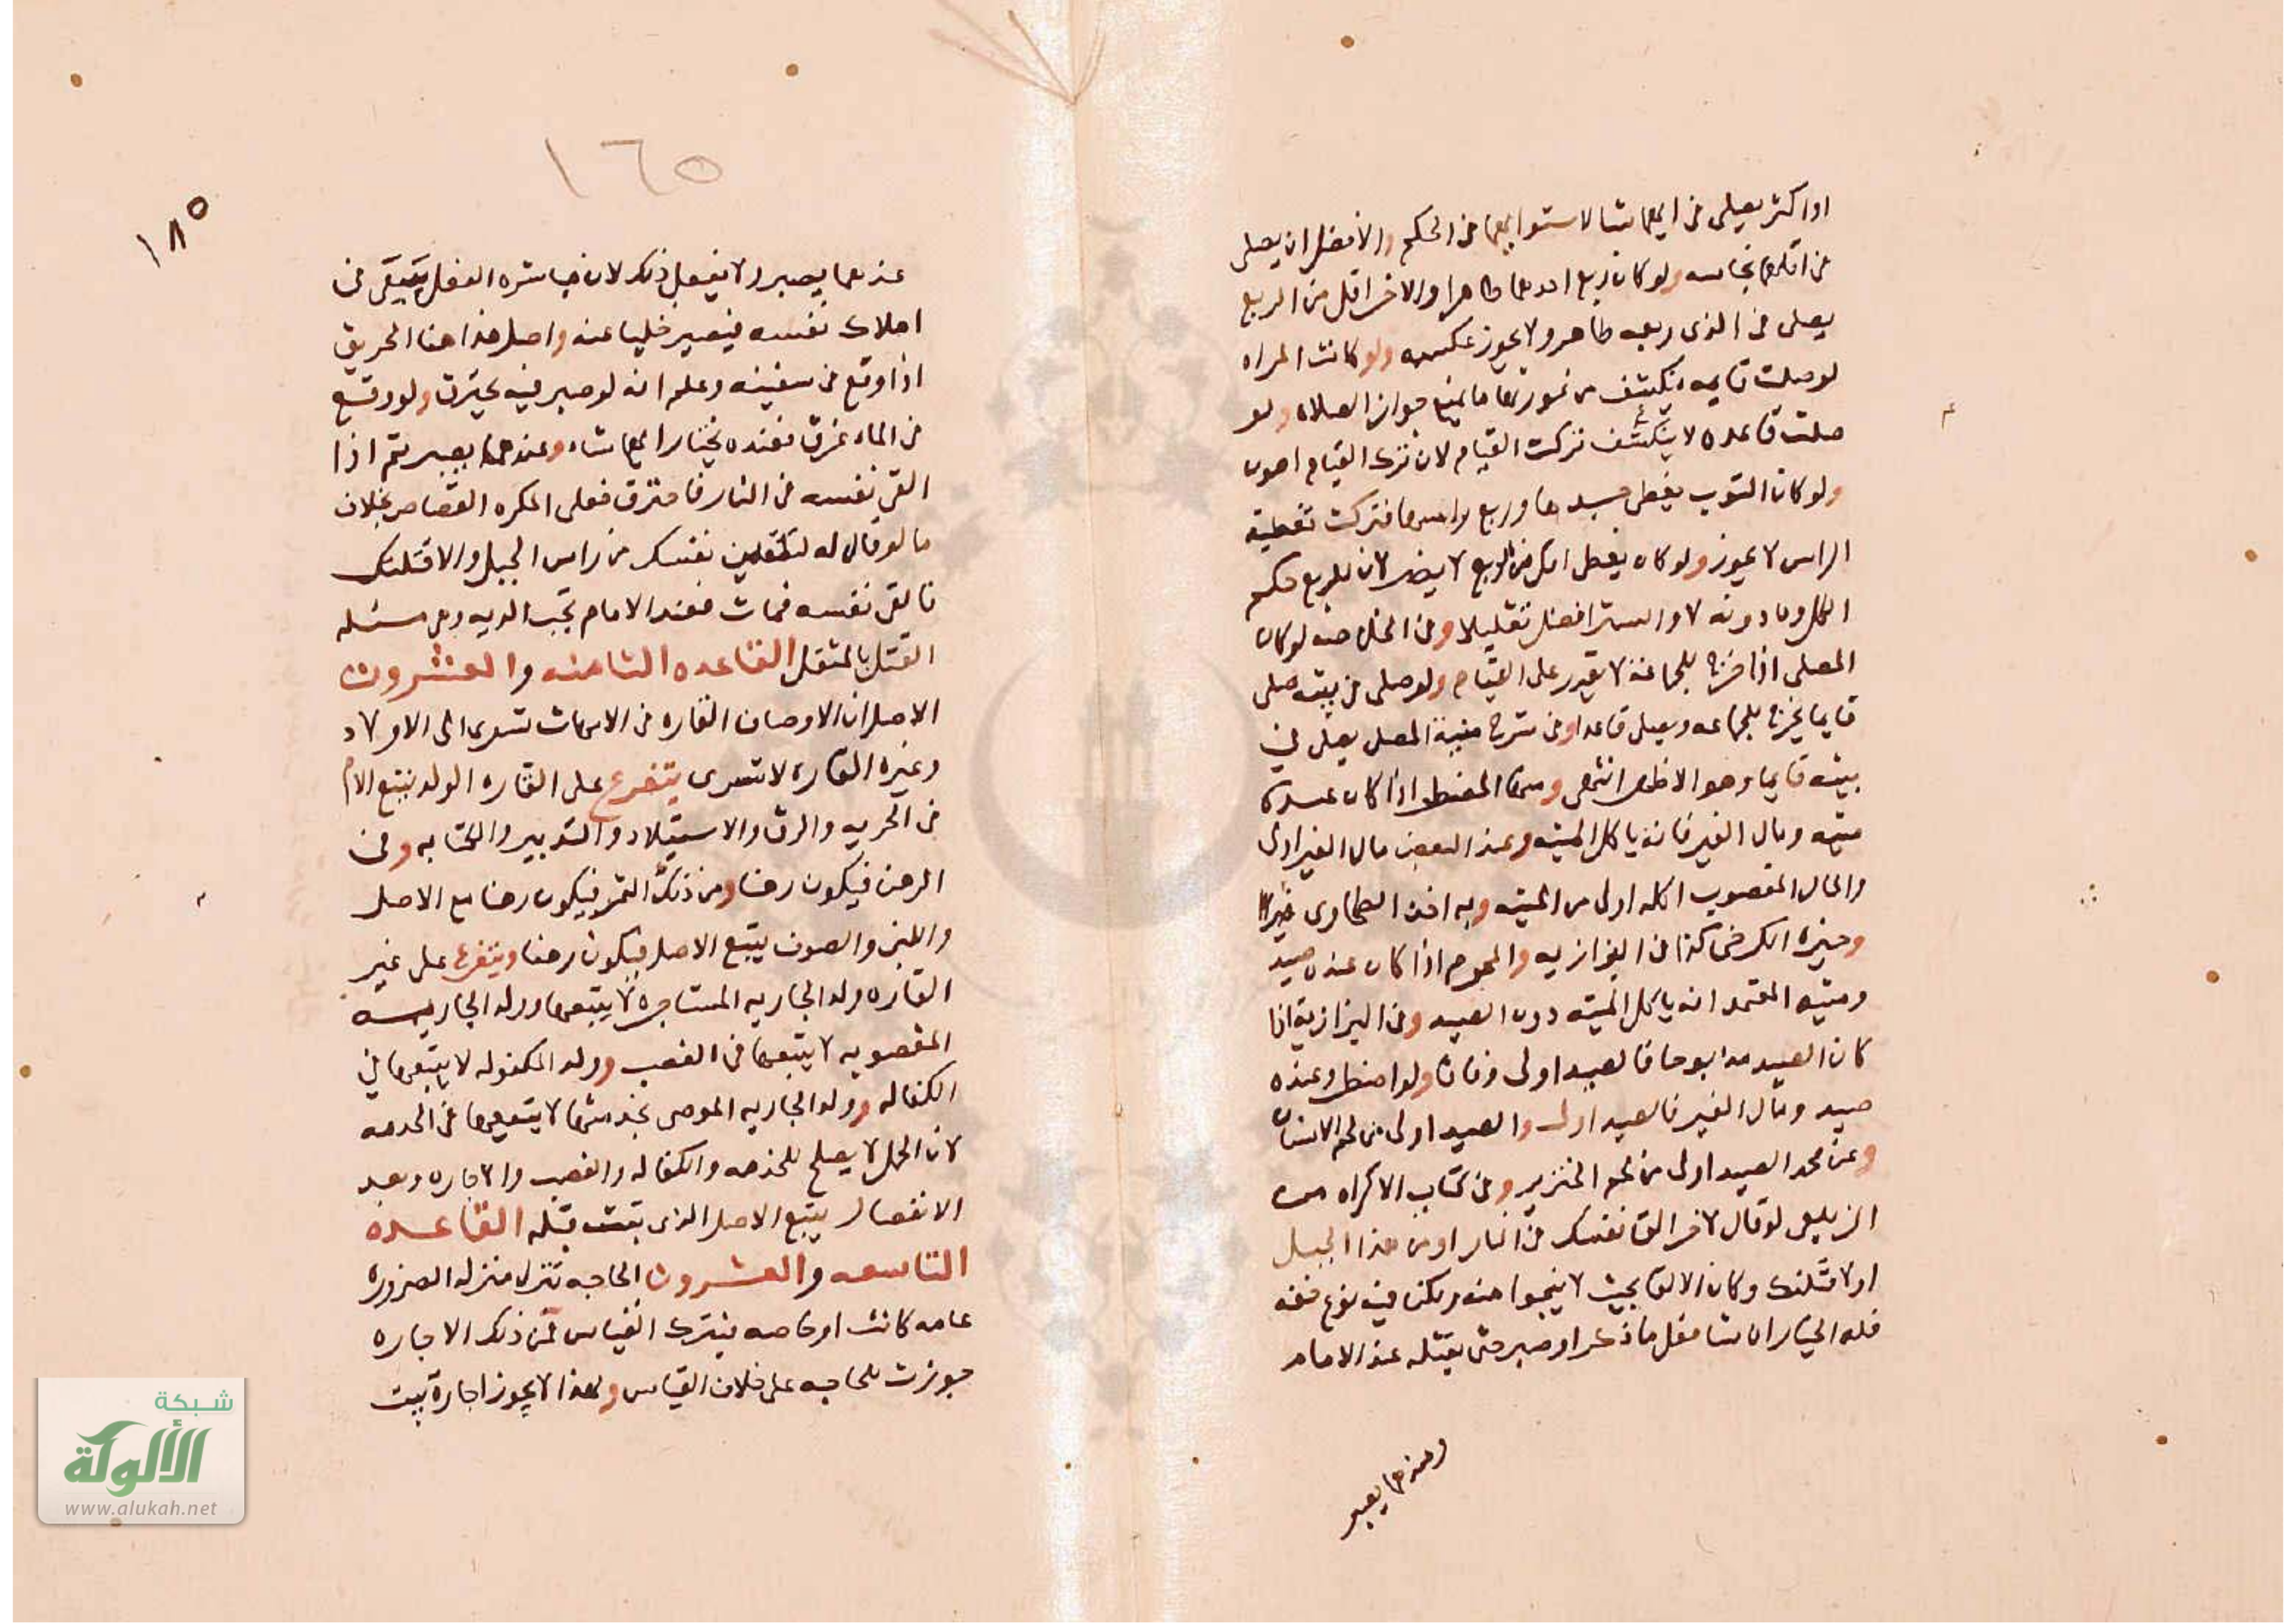 او اكثر يصلى فى ايهما شا لاستوايهما فى الحكم والافضل ان يصلى
فى اقلهما نجاسه ولو كان ربع احدهما طاهرا والاخر اقل من الربع
يصلى فى الذى ربعه طاهر ولا يجوز عكسه ولو كانت المراه
لو صلت قايمه ينكشف من عورتها ما يمنع جواز الصلاه ولو
صلت قاعده لا ينكشف تركت القيام لان ترك القيام اهون
ولو كان الثوب يغطى جسدها وربع راسها فتركت تغطية
الراس لا يجوز ولو كان يغطى اقل من الربع لا يضر لان للربع حكم
الكل وما دونه لا والستر افضل تقليلا وفى الخلاصه لو كان
المصلى اذا خرج للجماعة لا يقدر على القيام ولو صلى فى بيته صلى
قايما يخرج للجماعه ويصلى قاعدا وفى شرح منية المصلى يصلى فى
بيته قايما وهو الاظهر انتهى ومنها المضطر اذا كان عنده
ميته ومال الغير فانه ياكل الميته وعند البعض مال الغير اولى
والمال المغصوب اكله اولى من الميته وبه اخذ الطحاوى
وخيره الكرخى كذا فى البزازيه والمحرم اذا كان عنده صيد
وميته المعتمد انه ياكل الميته دون الصيد وفى البزازية اذا
كان الصيد مذابوحا فالصيد اولى وفاقا ولو اضطر وعنده
صيد ومال الغير فالصيد اولى والصيد اولى من لحم الانسان
وعن محمد الصيد اولى من لحم الخنزير وفى كتاب الاكراه من
الزيلعى لو قال لاخر الق نفسك فى النار او من هذا الجبل
او لاقتلنك وكان الالقا بحيث لا ينجوا منه ولكن فيه نوع خفه
فله الخيار ان شا فعل ماذكر او صبر حتى يقتله عند الامام
وعندهما يصبر
١٦٥
١٨٥
عندهما يصبر ولا يفعل ذلك لان مباشره الفعل يتبقى فى
اهلاك نفسه فيصير خليا عنه واصل هذا هنا الحريق
اذا وقع فى سفينه وعلم انه لو صبر فيه يحترق ولو وقع
فى الماء غرق فعنده يختار ايهما شاء وعندهما يصبر ثم اذا
القى نفسه فى النار فاحترق فعلى المكره القصاص بخلاف
ما لو قال له لتلقين نفسك من راس الجبل والا قتلتك
فالقى نفسه فمات فعند الامام تجب الديه وهى مسئله
القتل بالمثقل القاعده الثامنه والعشرون
الاصل ان الاوصاف القاره فى الامهات تسرى الى الاولاد
وغيره القاره لا تسرى يتفرع على القاره الولد يتبع الام
فى الحريه والرق والاستيلاد والتدبير والكتابه وفى
الرهن فيكون رهنا ومن ذلك الثمر فيكون رهنا مع الاصل
واللبن والصوف يتبع الاصل فيكون رهنا ويتفرع على غير
القاره ولد الجاريه المستاجره لا يتبعها وولد الجاريه
المغصوبه لا يتبعها فى الغصب وولد المكفوله لا يتبعها فى
الكفاله وولد الجاريه الموصى بخدمتها لا يتبعها فى الخدمه
لان الحمل لا يصلح للخدمه والكفاله والغصب والاجاره وبعد
الانفصال يتبع الاصل الذى ثبت قبله القاعده
التاسعه والعشرون الحاجه تنزل منزله الضروره
عامه كانت او خاصه فيترك القياس فمن ذلك الاجاره
جوزت للحاجه على خلاف القياس ولهذا لا يجوز اجارة بيت
شبكة
الألوكة
www.alukah.net